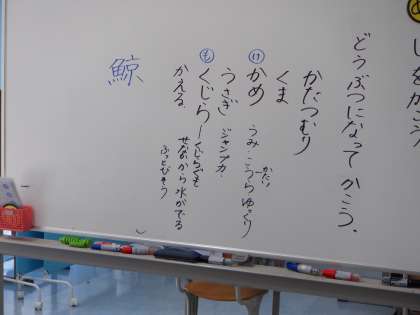 しをかこう
どうぶつになって かこう.
かたつむり
くま
け かめ うみ・こうら ゆっくり
かたい
も くじら―くじらぐも
せなかから 水がでる
うさぎ ジャンプ力.
かえる.
鯨